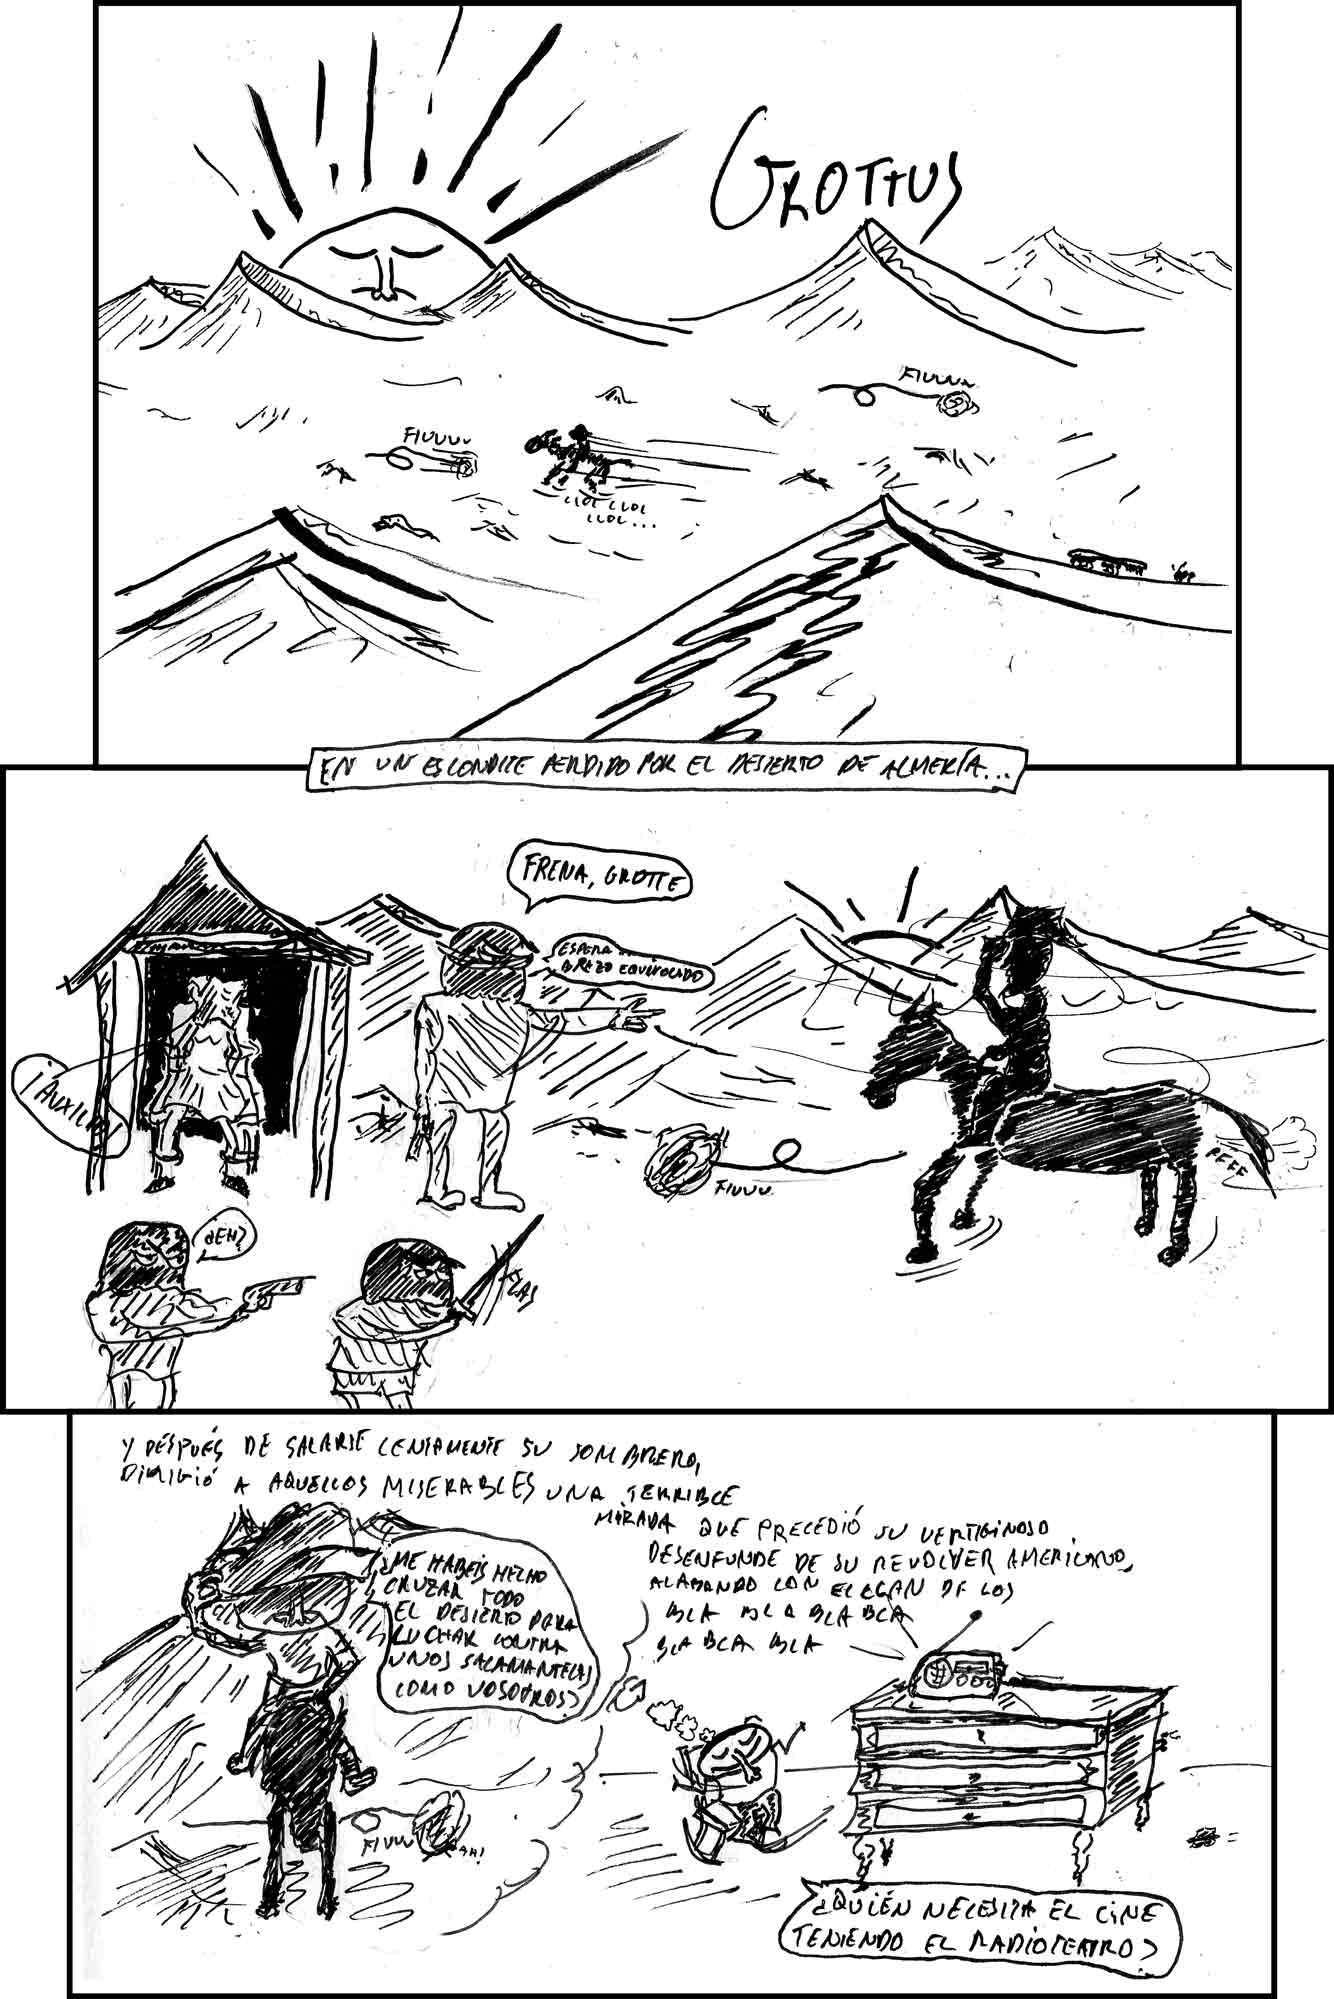 GROTTUS
FIUUUU
FIUUUU
CLOC CLOC
CLOC...
EN UN ESCONDITE PERDIDO POR EL DESIERTO DE ALMERÍA...
FRENA, GROTTE
ESPERA
BRAZO EQUIVOCADO
¡AUXILIO
FIUUU
PFFF
¿EH?
CLAS
Y DESPUÉS DE SACARSE LENTAMENTE SU SOMBRERO,
DIRIGIÓ A AQUELLOS MISERABLES UNA TERRIBLE
MIRADA QUE PRECEDIÓ SU VERTIGINOSO
DESENFUNDE DE SU REVOLVER AMERICANO,
ALABANDO CON EL
BLA BLA BLA BLA
BLA BLA BLA
¿ME HABEIS HECHO
CRUZAR TODO
EL DESIERTO PARA
LUCHAR CONTRA
UNOS SALAMANTECAS
COMO VOSOTROS?
FIUUU
¿QUIÉN NECESITA EL CINE
TENIENDO EL RADIOTEATRO?